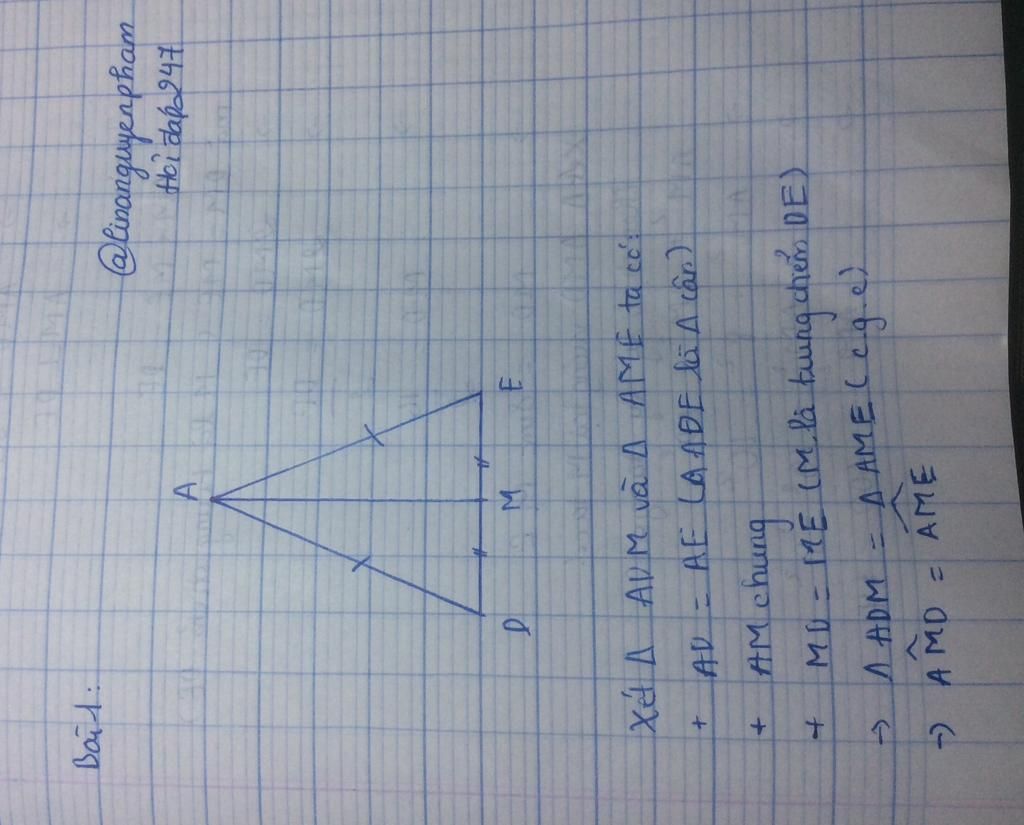 Bài 1:
@linanguyenpham
Hỏi đáp 247
A
D M E
Xét Δ ADM và Δ AME ta có:
+ AD = AE (Δ ADE là Δ cân)
+ AM chung
+ MD = ME (M là trung điểm DE)
→ Δ ADM = Δ AME (c.g.c)
→ AM̂D = AM̂E